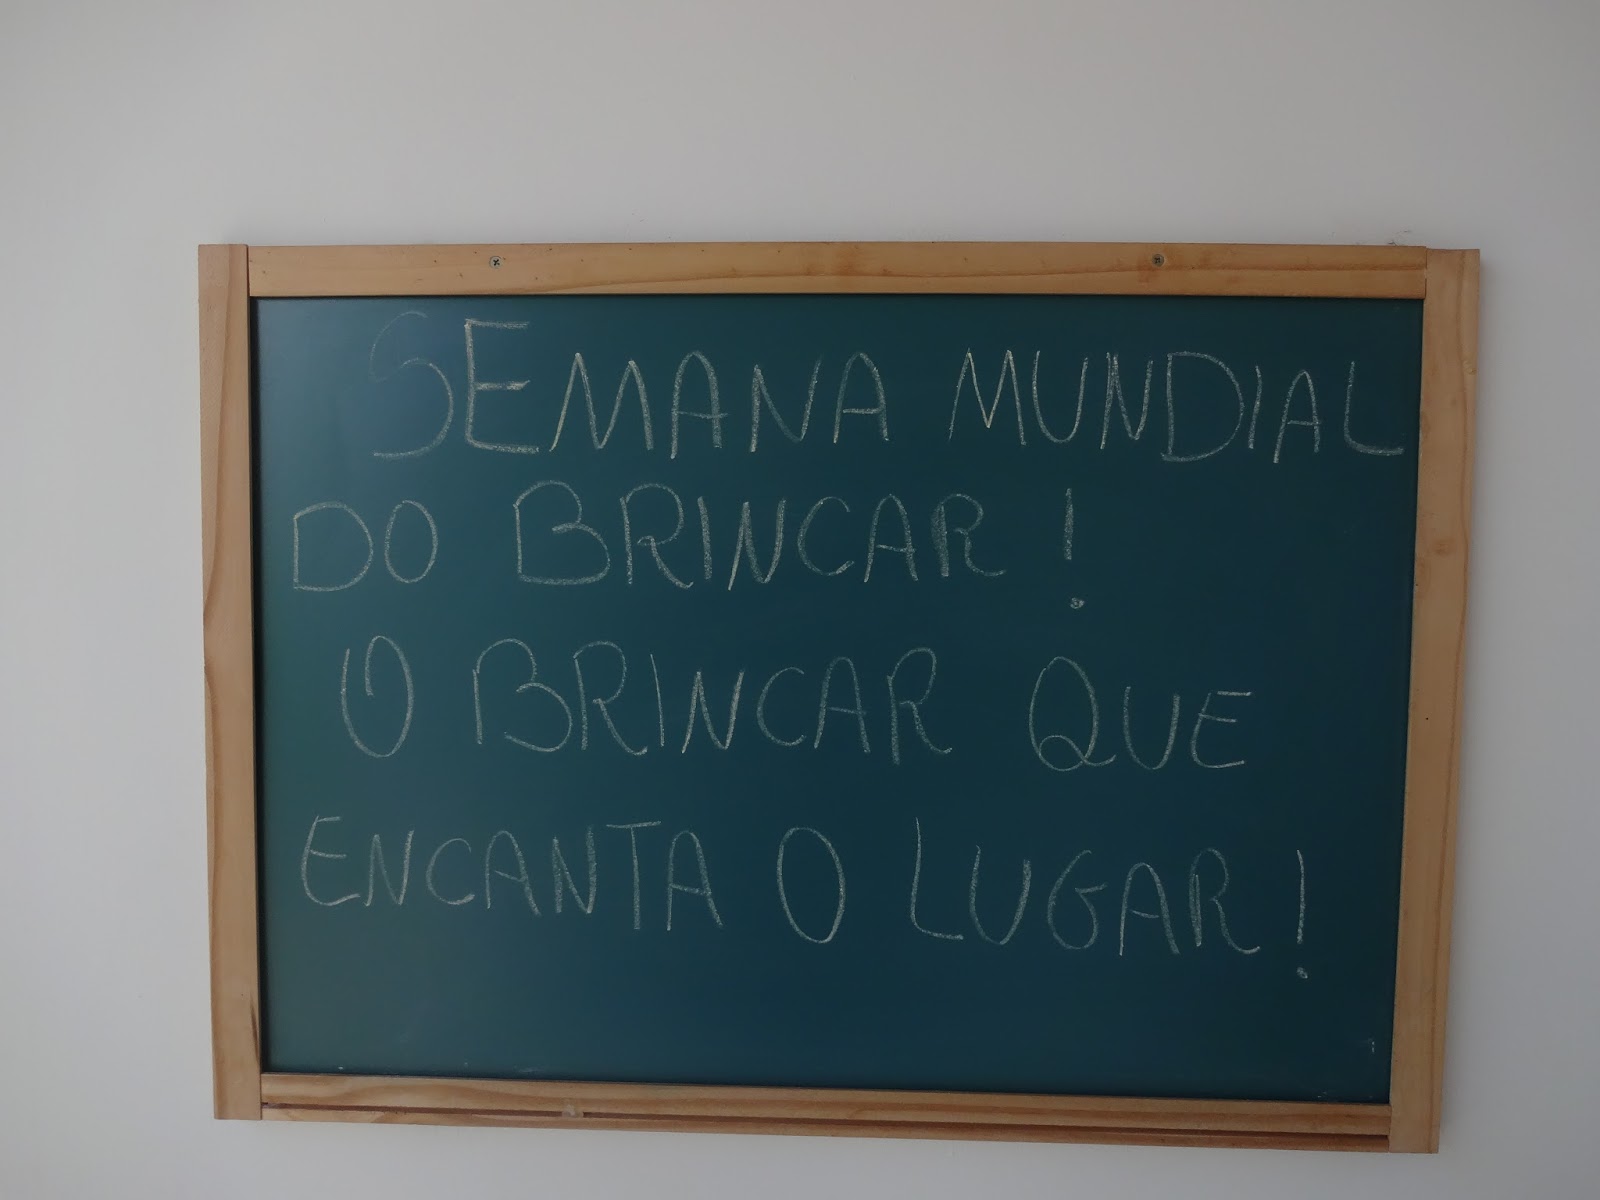 SEMANA MUNDIAL
DO BRINCAR!
O BRINCAR QUE
ENCANTA O LUGAR!